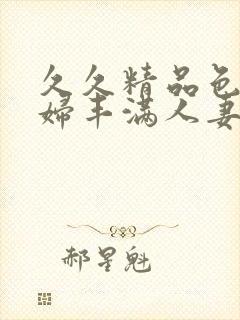 久久精品色
婦丰满人妻
郝星魁